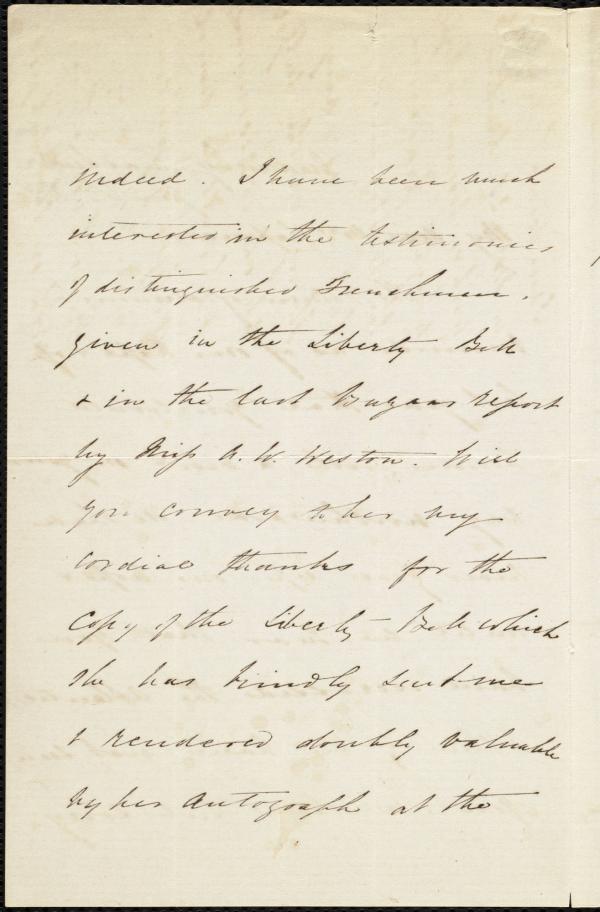 indeed. I have been much
interested in the testimonies
of distinguished Frenchmen,
given in the Liberty Bell
& in the last Bazaar report
by Miss A. W. Weston. Will
you convey to her my
cordial thanks for the
copy of the Liberty Bell which
she has kindly sent me
& rendered doubly valuable
by her Autograph at the